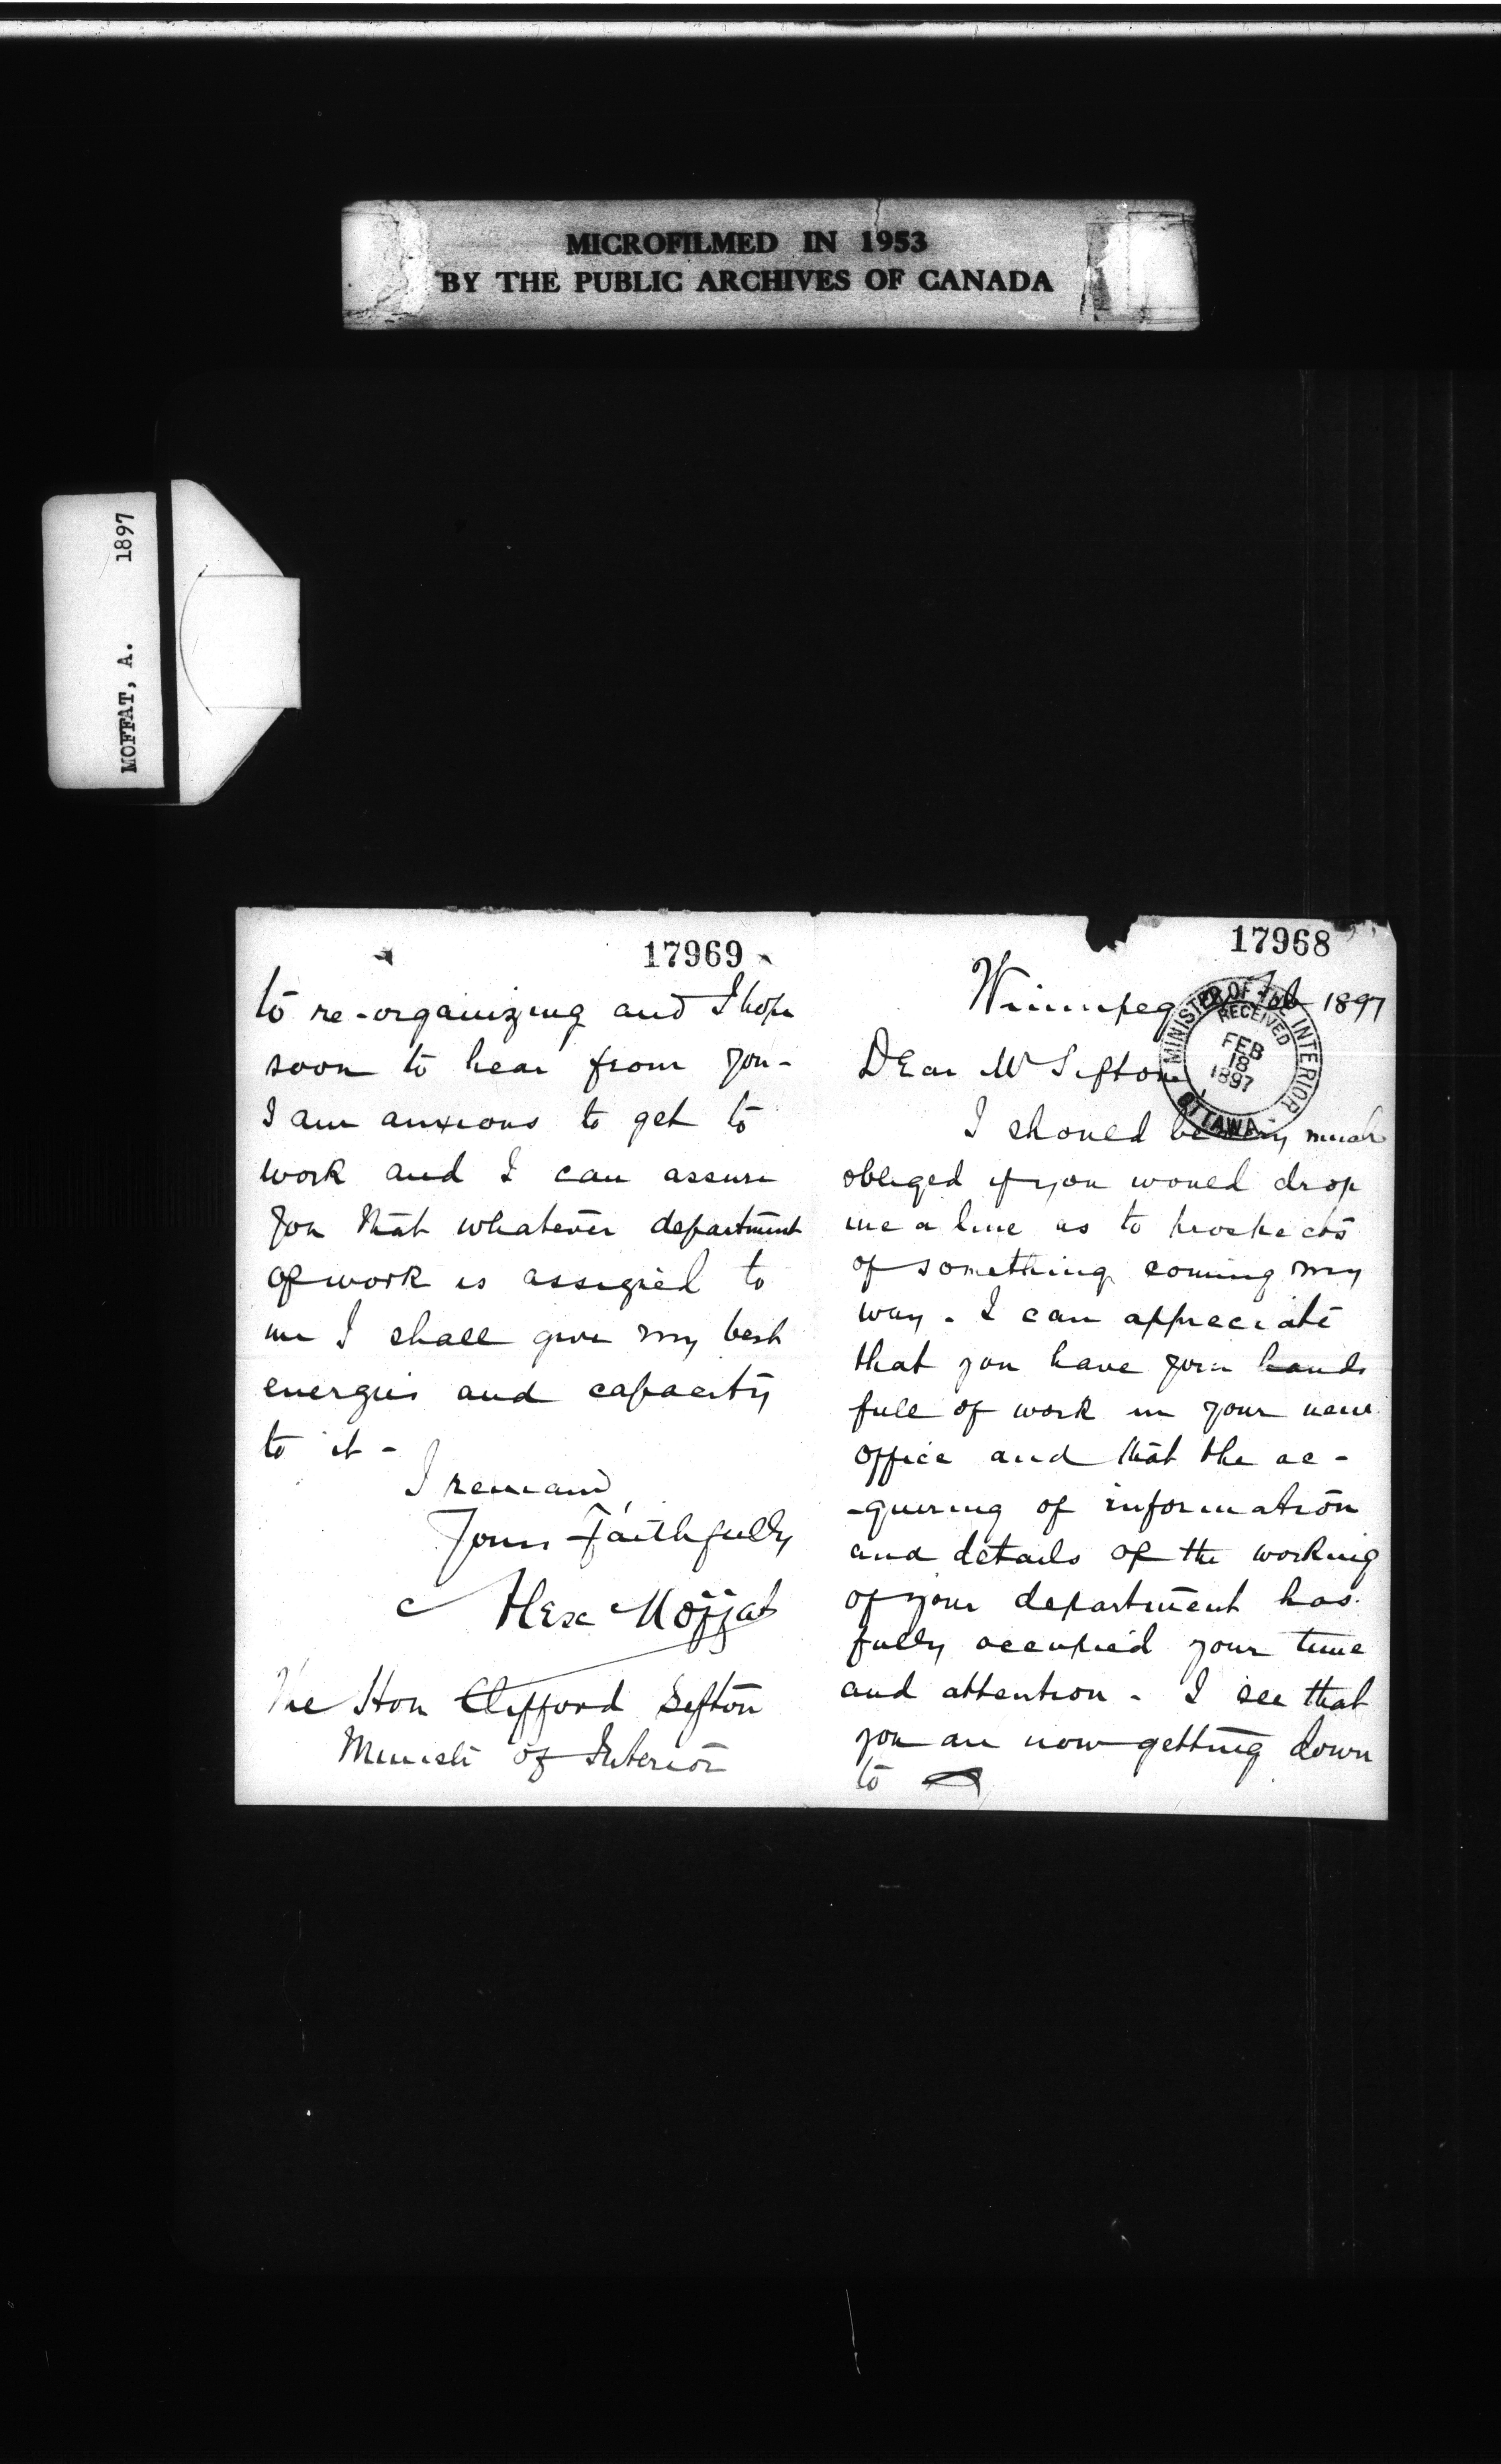 MICROFILMED IN 1953
BY THE PUBLIC ARCHIVES OF CANADA
MOFFAT, A. 1897
17968
Winnipeg Feb 1897
MINISTER OF THE INTERIOR
RECEIVED
FEB
18
1897
OTTAWA
Dear Mr Sifton,
I should be very much
obliged if you would drop
me a line as to prospects
of something coming my
way - I can appreciate
that you have your hands
full of work in your new
office and that the ac-
-quiring of information
and details of the working
of your department has
fully occupied your time
and attention - I see that
you are now getting down
to
17969
to re-organizing and I hope
soon to hear from you -
I am anxious to get to
work and I can assure
you that whatever department
of work is assigned to
me I shall give my best
energies and capacity
to it -
I remain,
Yours Faithfully
Alex Moffat
The Hon Clifford Sifton
Minister of Interior